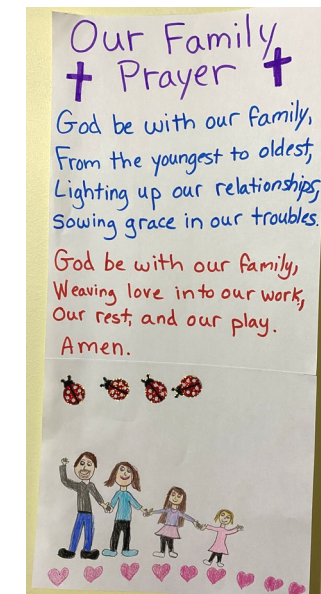 Our Family
Prayer
God be with our family,
From the youngest to oldest,
Lighting up our relationships,
Sowing grace in our troubles.
God be with our family,
Weaving love into our work,
Our rest, and our play.
Amen.